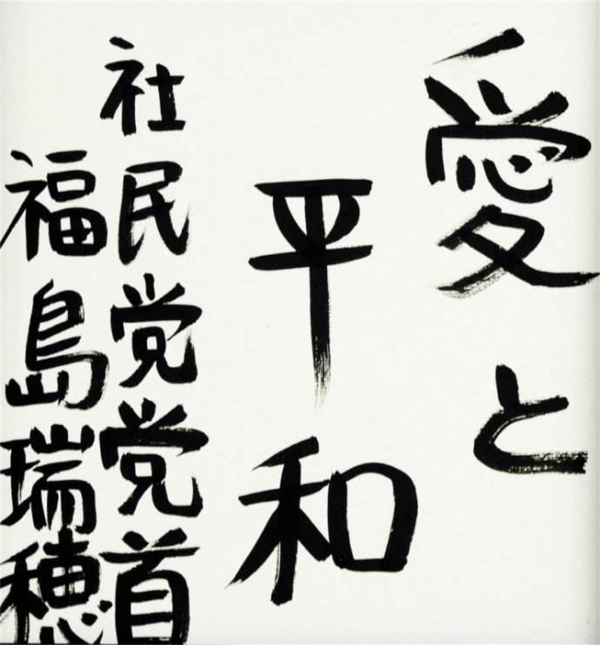 愛と
平和
社民党党首
福島瑞穂